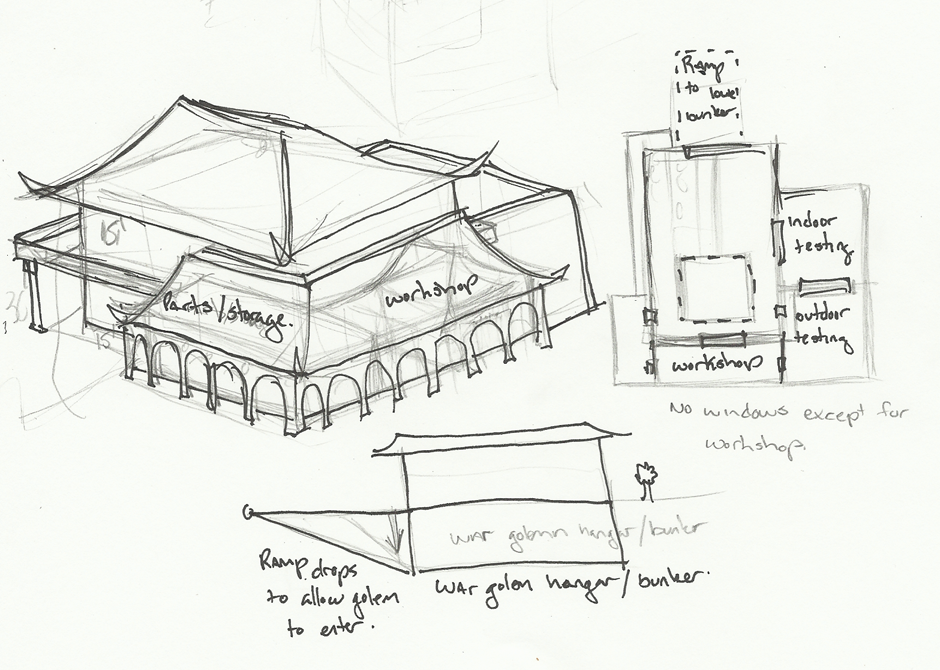 Ramp
to lower
bunker.
15'
Parts/storage.
workshop
indoor
testing
outdoor
testing
workshop
No windows except for
workshop.
war golem hangar/bunker
Ramp drops
to allow golem
to enter.
war golem hangar/bunker.